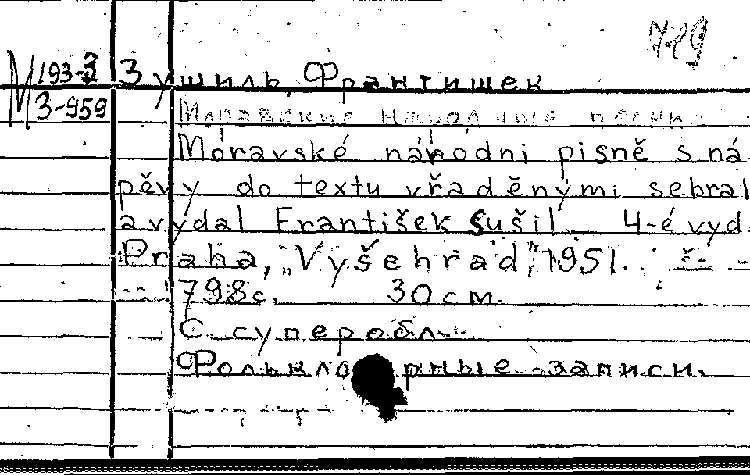 789
М 193-3 Зушиль, Франтишек
3-959
Моравские народные песни.
Moravské národni pisně s ná
pěvy do textu vřaděnými sebral
a vydal František Sušil 4-é vyd.
Praha, "Vyšehrad", 1951.
798с. 30см.
С суперобл.
Фольклорные записи.